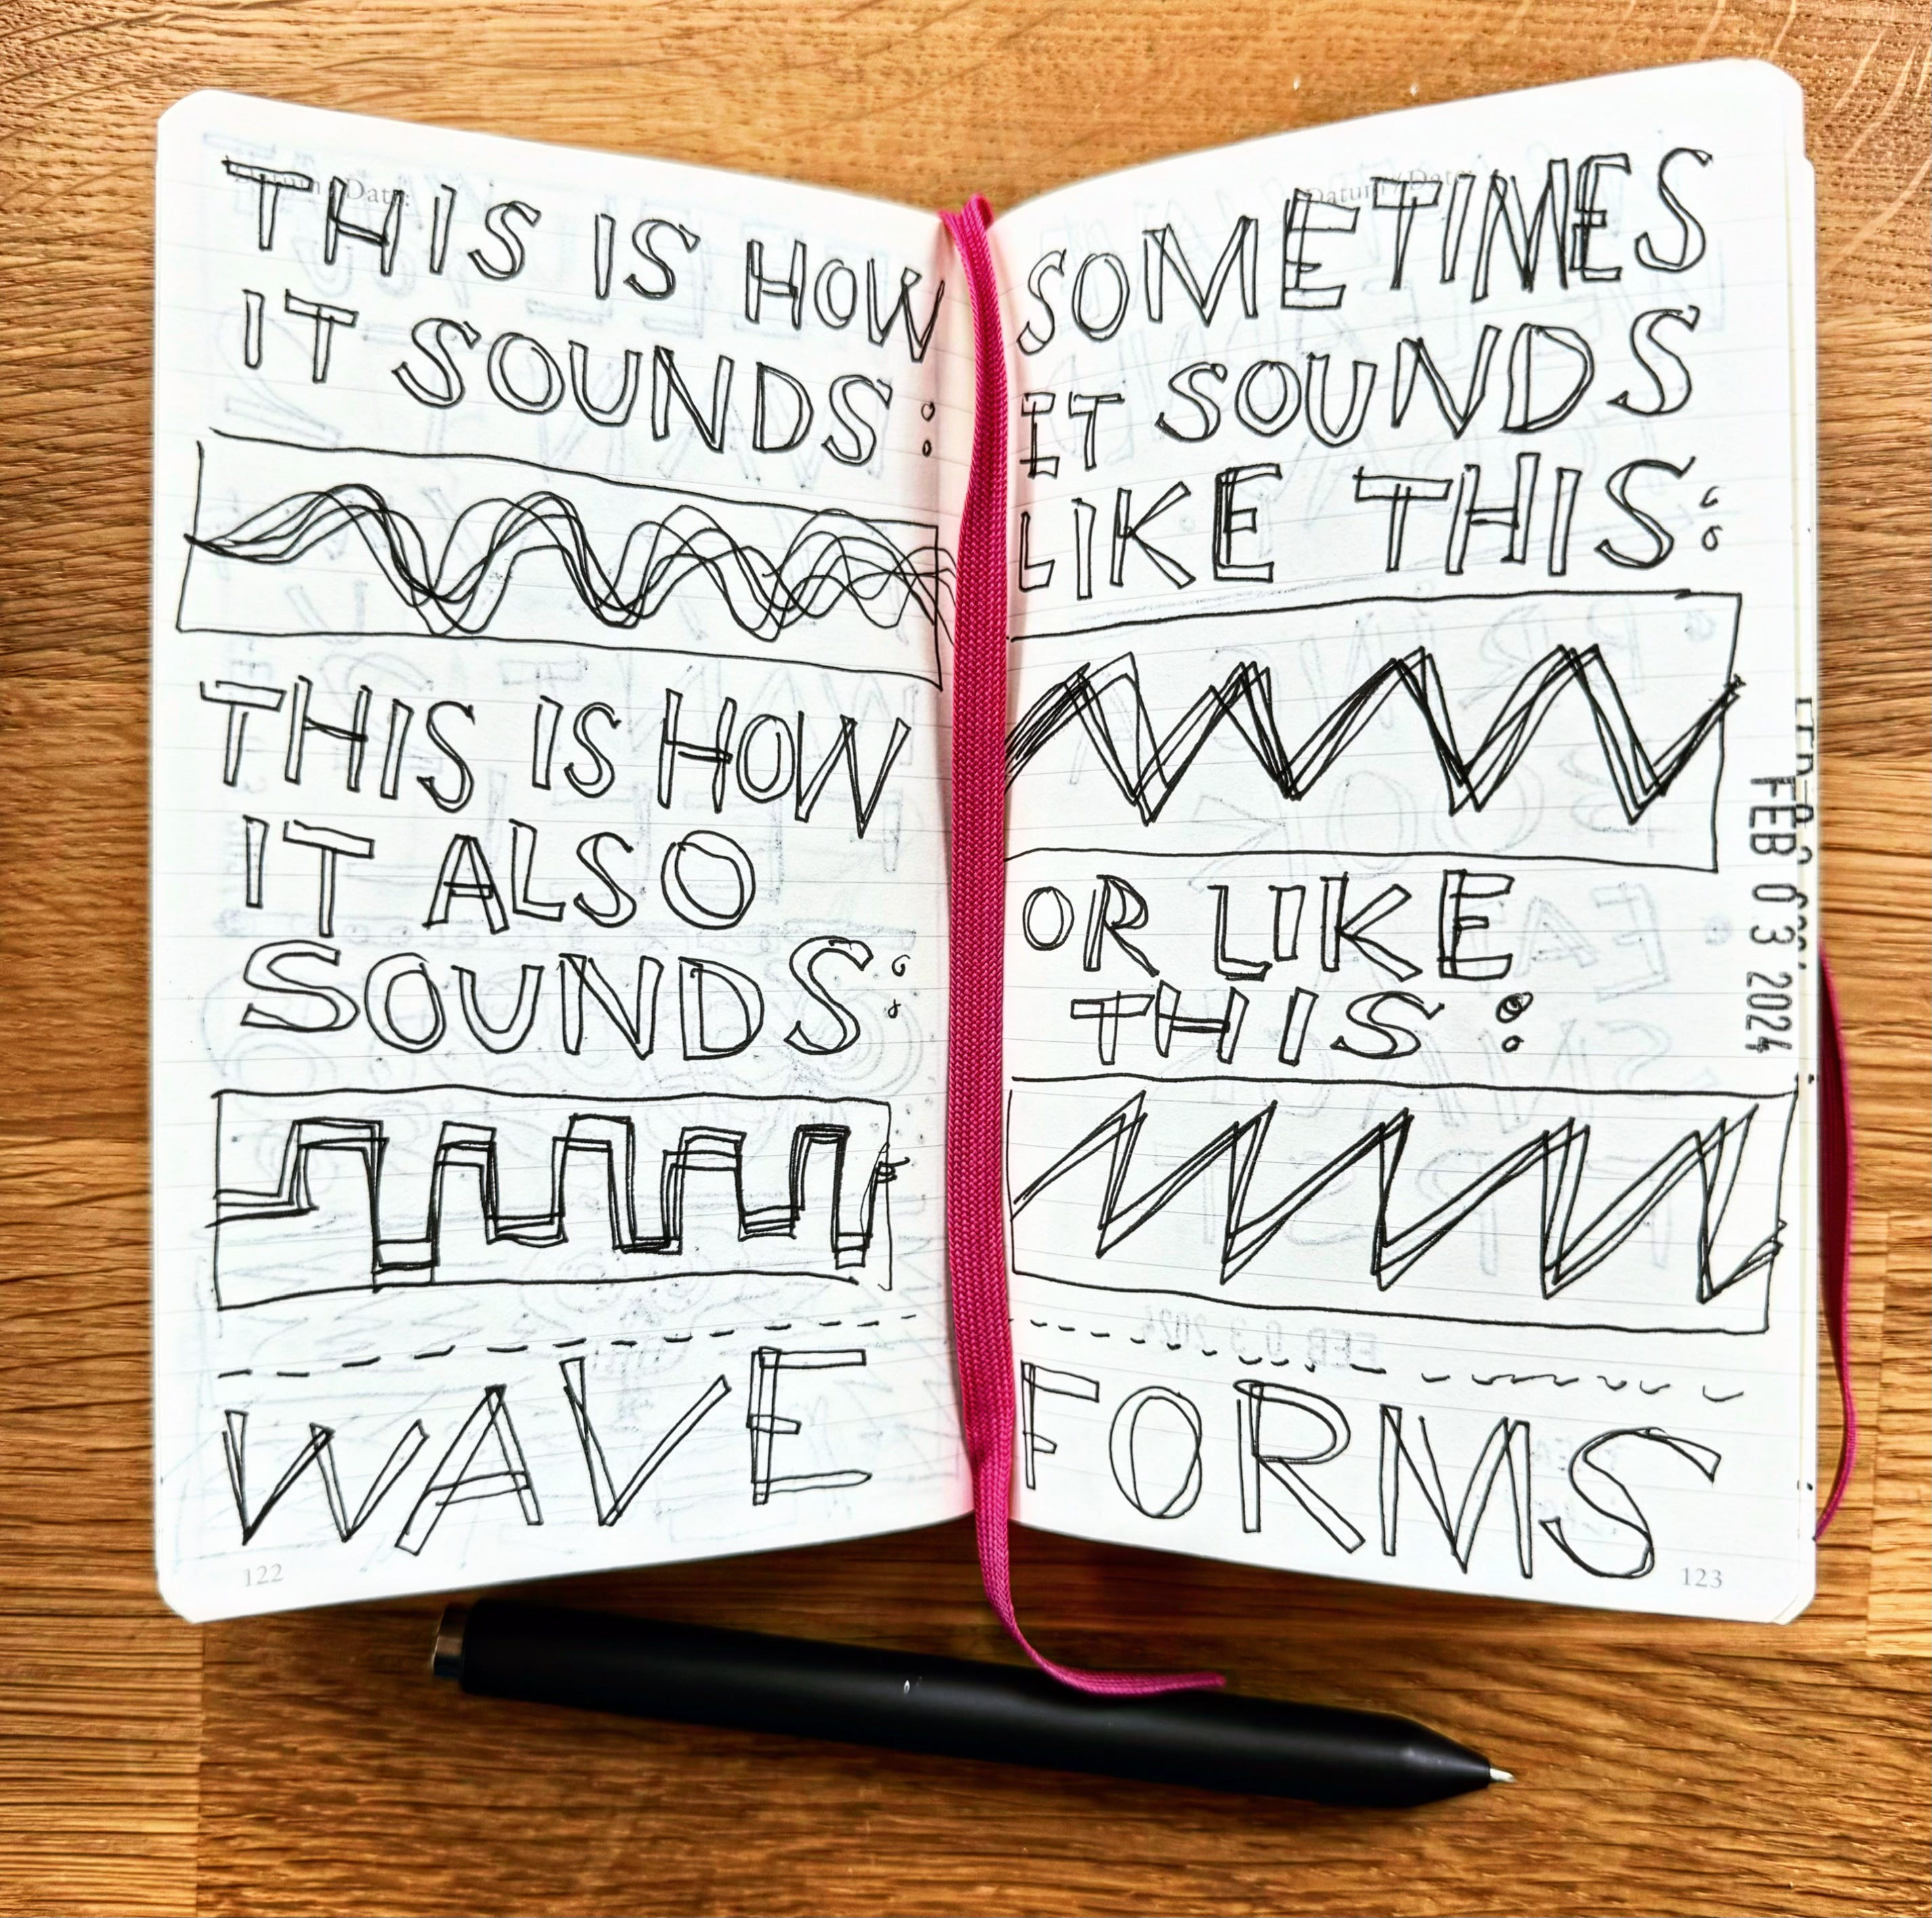 Datum / Date:
THIS IS HOW
IT SOUNDS:
THIS IS HOW
IT ALSO
SOUNDS:
WAVE
122
Datum / Date:
SOMETIMES
IT SOUNDS
LIKE THIS:
OR LIKE
THIS:
FORMS
123
FEB 03 2024
FEB 03 2024